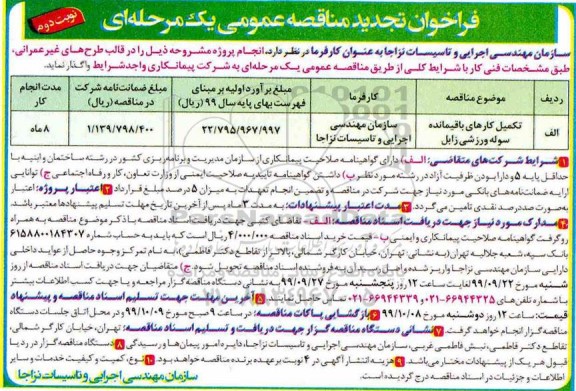 نوبت دوم
فراخوان تجدید مناقصه عمومی یک مرحله‌ای
سازمان مهندسی اجرایی و تاسیسات نزاجا به عنوان کارفرما در نظر دارد، انجام پروژه مشروحه ذیل را در قالب طرح‌های غیر عمرانی،
طبق مشخصات فنی کار با شرایط کلی از طریق مناقصه عمومی یک مرحله‌ای به شرکت پیمانکاری واجد شرایط واگذار نماید.
ردیف موضوع مناقصه کارفرما مبلغ برآورد اولیه بر مبنای فهرست بهای پایه سال ۹۹ (ریال) مبلغ ضمانت‌نامه شرکت در مناقصه (ریال) مدت انجام کار
الف تکمیل کارهای باقیمانده سوله ورزشی زابل سازمان مهندسی اجرایی و تاسیسات نزاجا ۲۲/۷۹۵/۹۶۷/۹۹۷ ۱/۱۳۹/۷۹۸/۴۰۰ ۸ ماه
۱ شرایط شرکت‌های متقاضی: الف) دارای گواهینامه صلاحیت پیمانکاری از سازمان مدیریت و برنامه‌ریزی کشور در رشته ساختمان و ابنیه با
حداقل پایه ۵ و دارا بودن ظرفیت آزاد در رشته مورد نظر ب) داشتن گواهینامه تاییدیه صلاحیت ایمنی از وزارت تعاون، کار و رفاه اجتماعی ج) توانایی
ارایه ضمانت‌نامه‌های بانکی مورد نیاز جهت شرکت در مناقصه و تضمین انجام تعهدات به میزان ۵ درصد مبلغ قرارداد ۲ اعتبار پروژه: اعتبار
به صورت صددرصد نقدی تامین می‌گردد ۳ مدت اعتبار پیشنهادات: به مدت ۳ ماه پس از آخرین تاریخ مهلت تسلیم پیشنهادها معتبر باشد
۴ مدارک مورد نیاز جهت دریافت اسناد مناقصه: الف
مناقصه با ذکر موضوع مناقصه به همراه
رو گرفت گواهینامه صلاحیت پیمانکاری و ایمنی ب
اسناد مناقصه ۴/۰۰۰/۰۰۰ ریال است که باید به حساب شماره ۶۱۵۸۸۰۰۱۸۴۳۰۷
بانک سپه، شعبه جلالیه تهران (به نشانی: تهران، خیابان کارگر شمالی، بالاتر از تقاطع دکتر فاطمی)، به نام تمرکز وجوه حاصل از عواید داخلی
دارایی سازمان مهندسی نزاجا واریز شده و
مناقصه تحویل شود ج) متقاضیان جهت دریافت اسناد مناقصه از روز
شنبه مورخ ۹۹/۰۹/۲۲ لغایت ساعت ۱۲ روز پنجشنبه مورخ ۹۹/۰۹/۲۷
دستگاه مناقصه گزار مراجعه و یا جهت کسب اطلاعات بیشتر
با شماره تلفن‌های ۶۶۹۴۴۳۲۵-۰۲۱ و ۶۶۹۴۴۳۳۹-۰۲۱
۵ آخرین مهلت جهت تسلیم اسناد مناقصه و پیشنهاد
قیمت: ساعت ۱۲ روز دوشنبه مورخ ۹۹/۱۰/۰۸ ۶ بازگشایی پاکات مناقصه: در ساعت ۹ صبح مورخ ۹۹/۱۰/۰۹ و در محل اتاق جلسات دستگاه
مناقصه گزار انجام خواهد گرفت. ۷ نشانی دستگاه مناقصه گزار جهت دریافت و تسلیم اسناد مناقصه: تهران، خیابان کارگر شمالی،
تقاطع دکتر فاطمی، نبش فاطمی غربی، سازمان مهندسی اجرایی و تاسیسات نزاجا، دایره امور پیمان‌ها و رسیدگی ۸ دستگاه مناقصه گزار در رد یا
قبول هر یک از پیشنهادات مختار می‌باشد. ۹ هزینه انتشار آگهی در ۴ نوبت بر عهده برنده مناقصه خواهد بود. ۱۰ نوع، کمیت و کیفیت خدمات و سایر
اطلاعات و جزئیات در اسناد مناقصه درج گردیده است.
سازمان مهندسی اجرایی و تاسیسات نزاجا